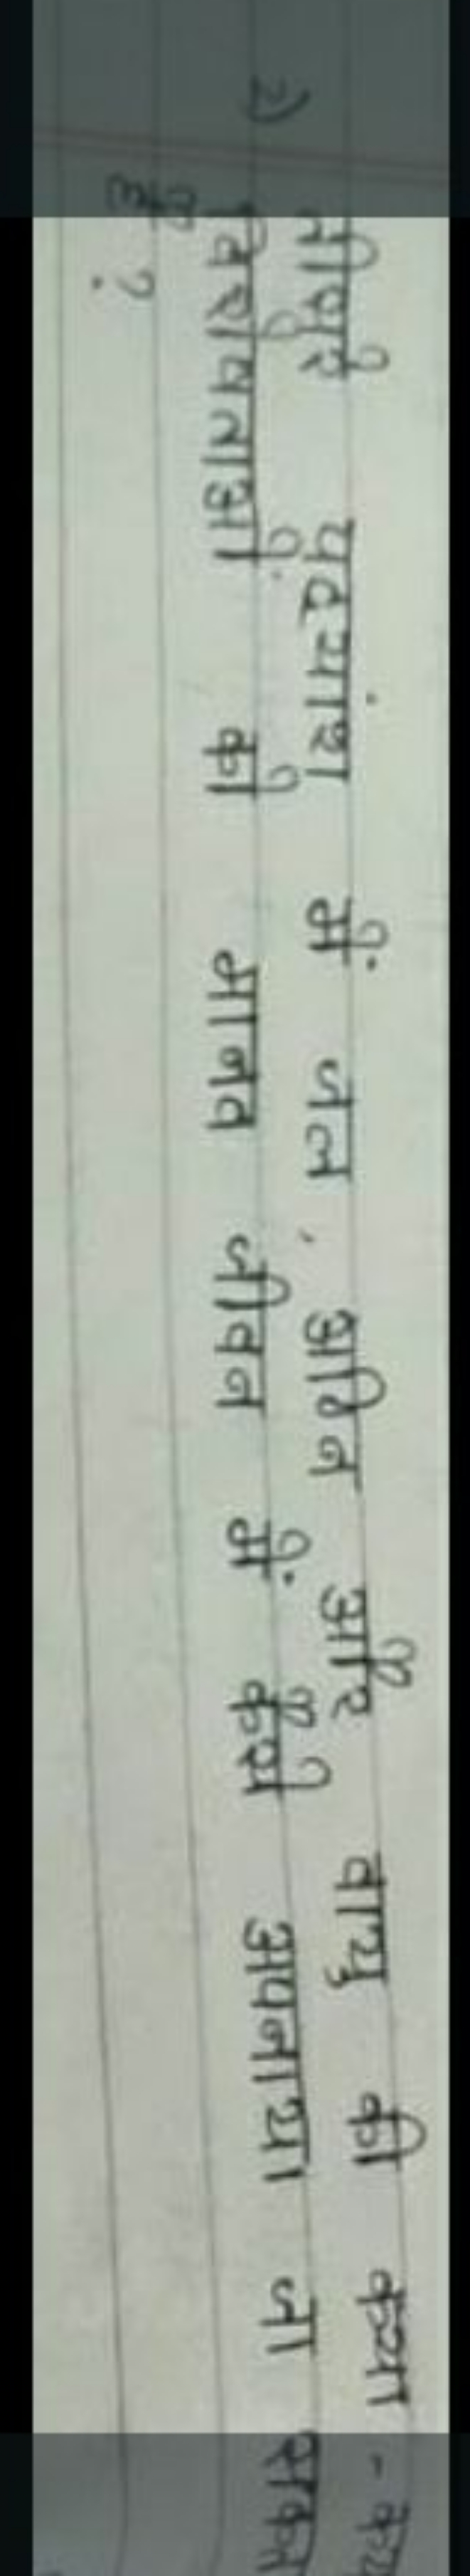 2) तीसरे पद्यांश में जल, अग्नि और वायु की क्या - क्य
विशेषताओं को मानव जीवन में कैसे अपनाया जा सकत
है ?